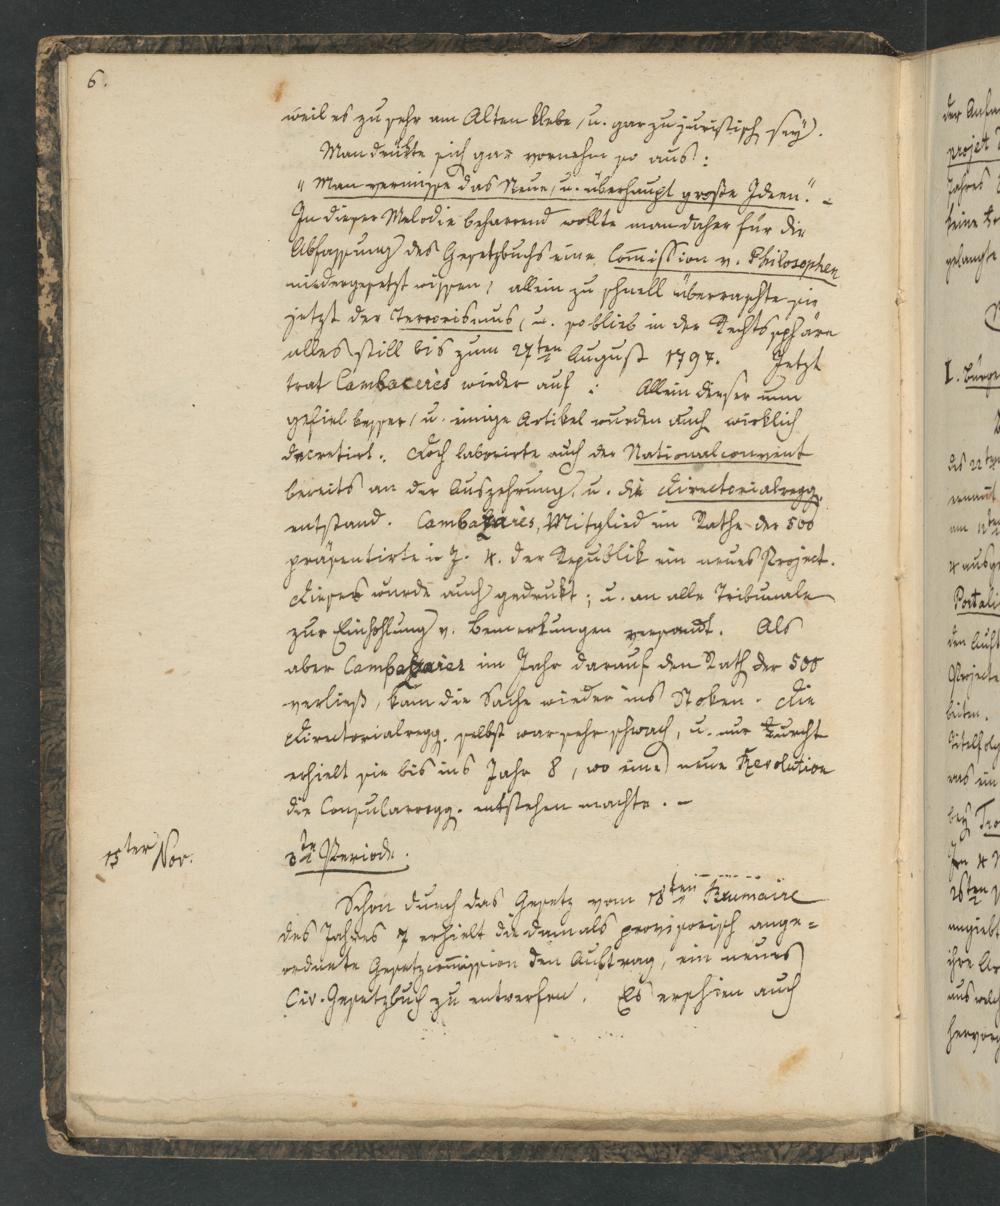 6.
weil es zu sehr am Alten klebe, u. gar zu juristisch sey).
Man drükte sich gar vornehm so aus:
„Man vermisse das Neue, u. überhaupt große Ideen.“ –
In dieser Melodie beharrend wollte man daher für die
Abfassung des Gesetzbuchs eine Commission v. Philosophen
niedergesetzt wissen, allein zu schnell überraschte sie
jetzt der Terrorismus, u. so blieb in der Rechtssphäre
alles still bis zum 27ten August 1797. Jetzt
trat Cambacerès wieder auf: Allein dieser nun
gefiel besser, u. einige Artikel wurden auch wirklich
decretirt. Doch laborirte auch der Nationalconvent
bereits an der Auszehrung, u. die Directorialregg.
entstand. Cambazarès, Mitglied im Rathe der 500
präsentirte i. J. 4. der Republik ein neues Project.
Dieses wurde auch gedrukt; u. an alle Tribunale
zur Einhohlung v. Bemerkungen versandt. Als
aber Cambazarès im Jahr darauf den Rath der 500
verließ, kam die Sache wieder ins Stoken. Die
Directorialregg. selbst war sehr schwach, u. nur Furcht
erhielt sie bis ins Jahr 8, wo eine neue Revolution
die Consularregg. entstehen machte. –
15ter Nov.
3te Periode.
Schon durch das Gesetz vom 18ten Brumaire
des Jahres 7 erhielt die damals provisorisch ange=
ordnete Gesetzcommission den Auftrag, ein neues
Civ. Gesetzbuch zu entwerfen. Es erschien auch